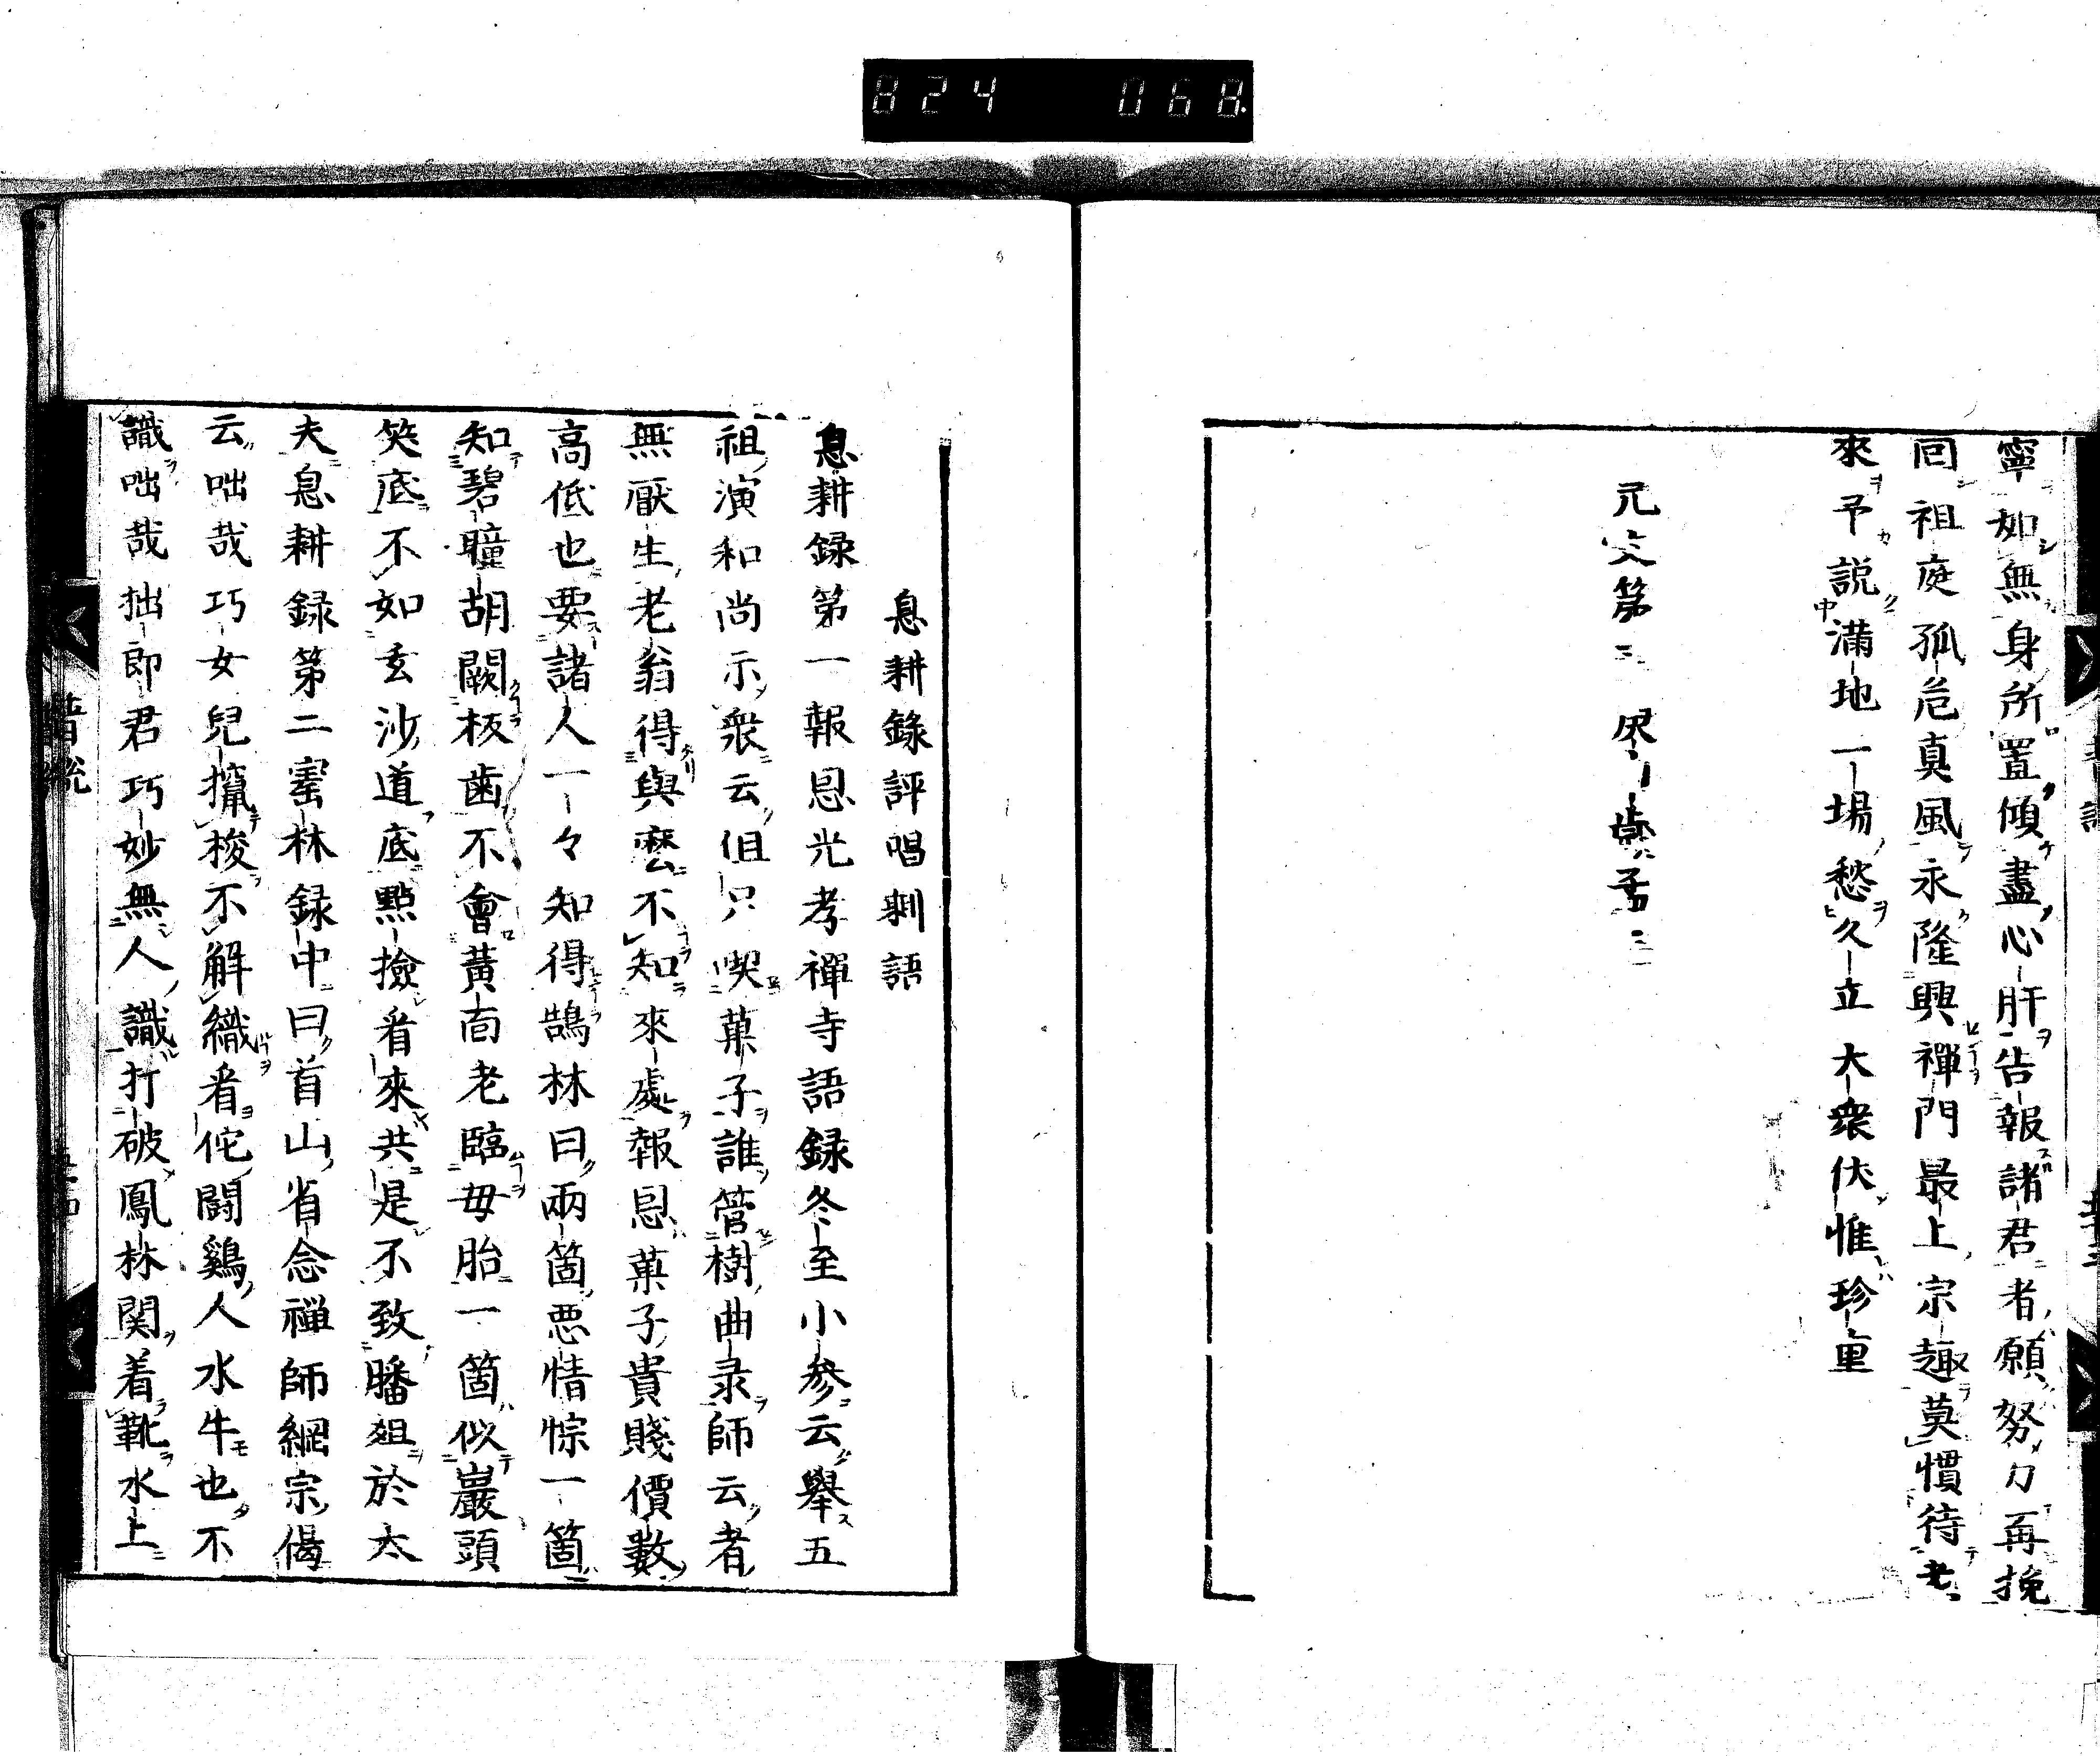 824 068
寧如無身所置傾盡心肝告報諸君者願努力再挽
回祖庭孤危真風永隆興禪門最上宗趣莫慣待老
來予説滿地一場愁久立大衆伏惟珍重
息耕錄評唱剩語
息耕録第一報恩光孝禪寺語録冬至小參云舉五
祖演和尚示衆云但只喫菓子誰管樹曲录師云者
無厭生老翁得與麽不知來處報恩菓子貴賤價數
高低也要諸人一一々知得鵠林曰兩箇悪情悰一箇
知碧瞳胡闕板齒不會黃面老臨毋胎一箇似巖頭
笑底不如玄沙道底點撿看來共是不致膰俎於太
夫息耕録第二寚林録中曰首山省念禅師綱宗偈
云咄哉巧女兒攛梭不解織看佗闘鷄人水牛也不
識咄哉拙郎君巧妙無人識打破鳳林関着靴水上